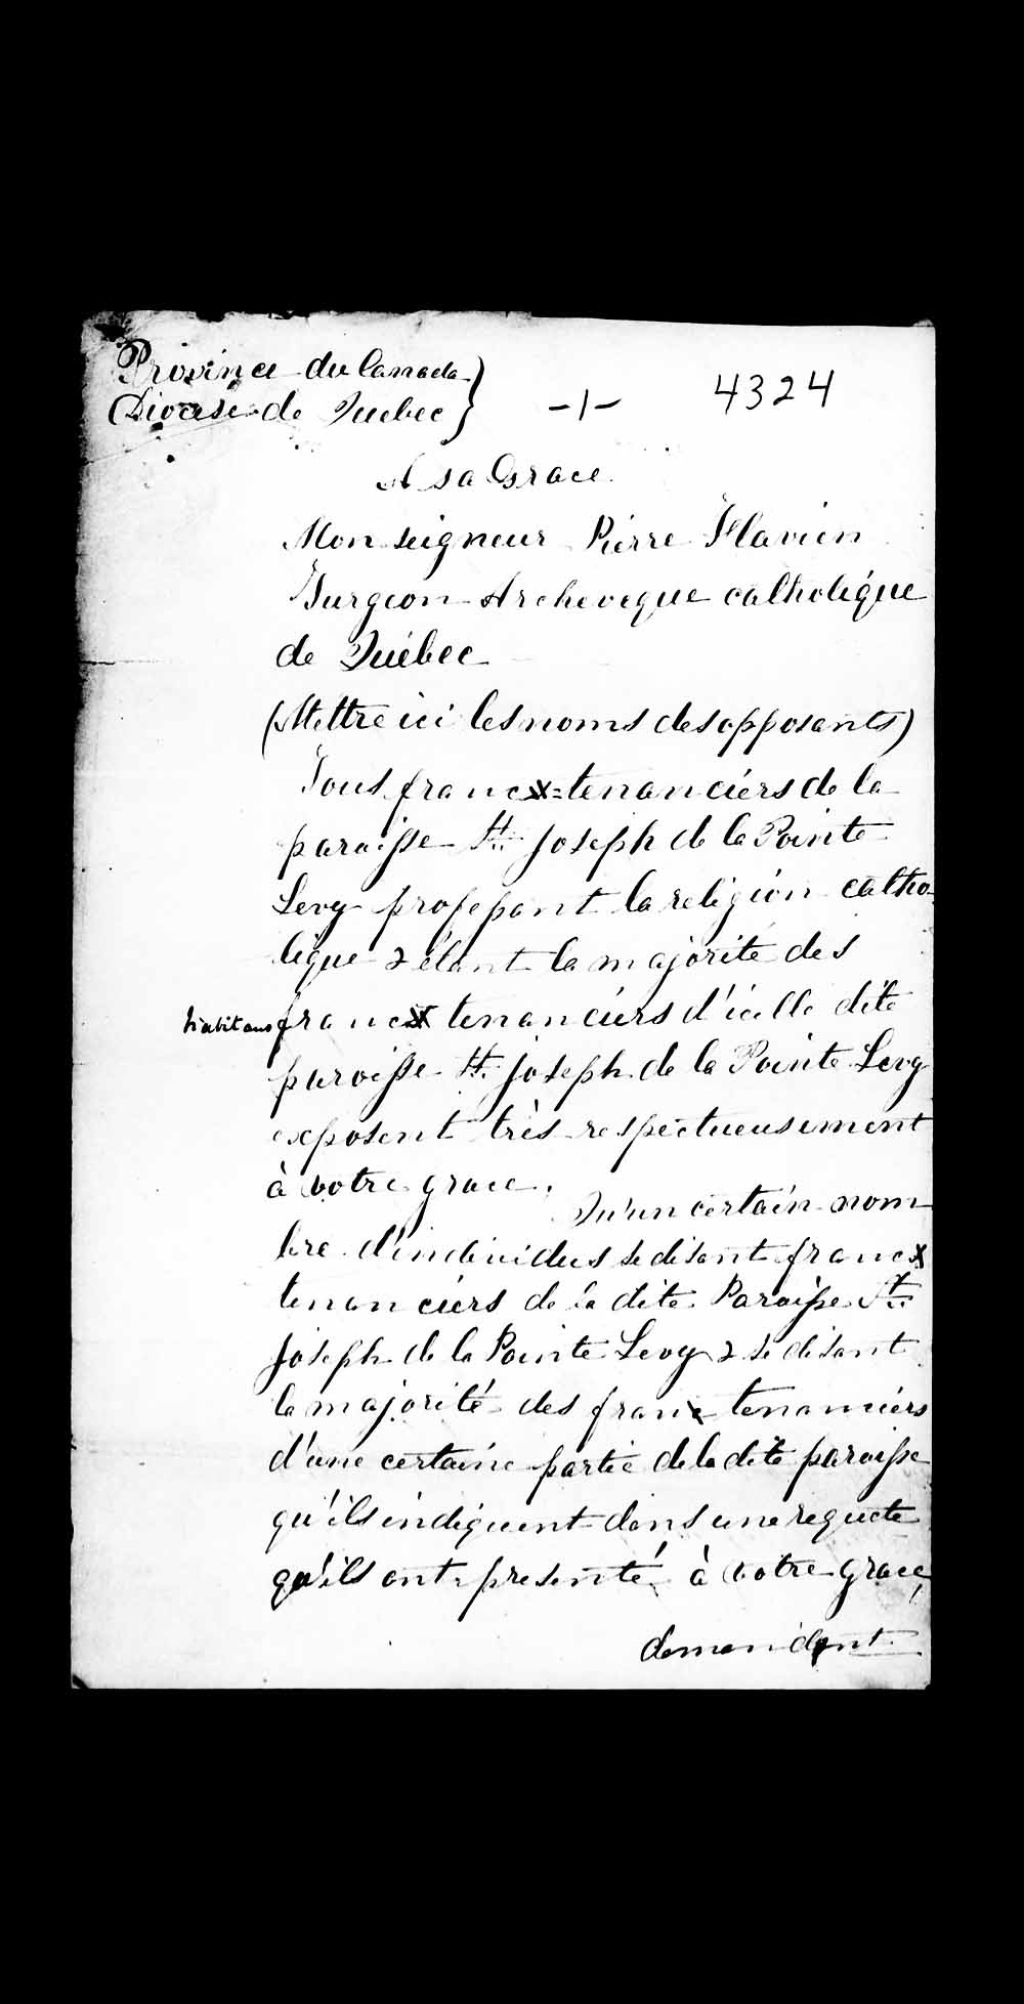 Province du Canada }
Diocese de Quebec } -1- 4324
A sa Grace
Monseigneur Pierre Flavien
Turgeon Archeveque catholique
de Québec
(Mettre ici les noms des opposants)
Tous franc=tenanciers de la
paroisse St. Joseph de la Pointe
Levy professant la religion catho-
lique & étant la majorité des
habitans franc tenanciers d'icelle dite
paroisse St. Joseph de la Pointe Levy
exposent très respectueusement
à votre grace,
Qu'un certain nom
bre d'individus se disant franc
tenanciers de la dite Paroisse St.
Joseph de la Pointe Levy & se disant
la majorité des franc tenanciers
d'une certaine partie de la dite paroisse
qu'ils indiquent dans une requete
qu'ils ont presenté à votre grace,
demandent